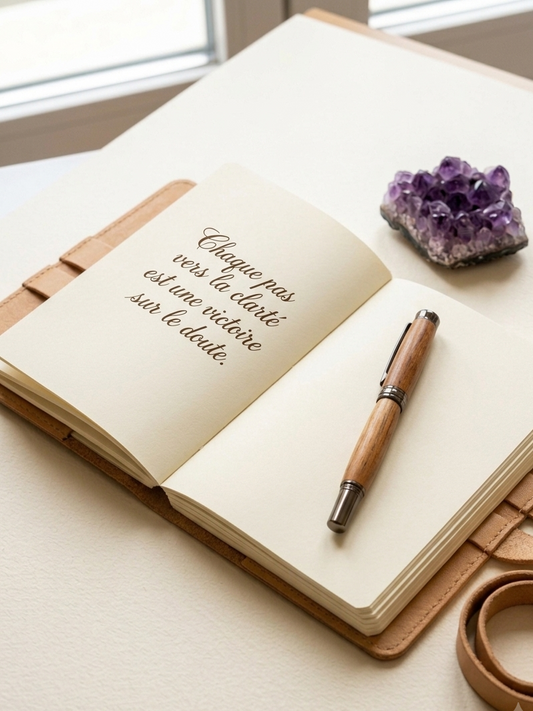 Chaque pas
vers la clarté
est une victoire
sur le doute.